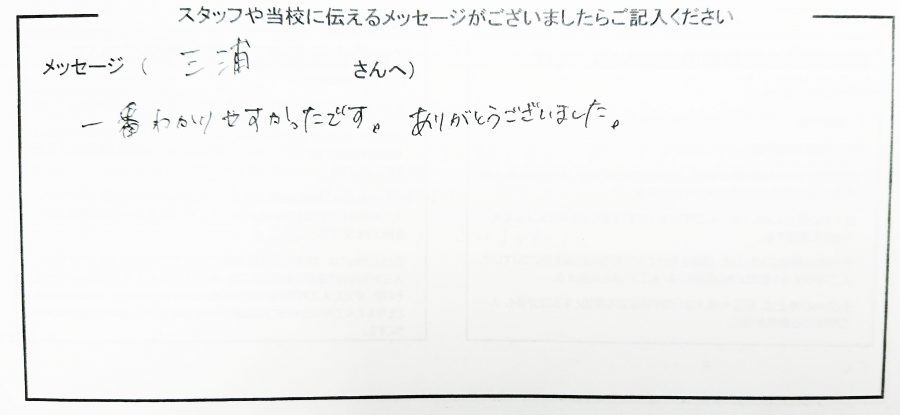 スタッフや当校に伝えるメッセージがございましたらご記入ください
メッセージ（ 三浦 さんへ）
一番わかりやすかったです。ありがとうございました。